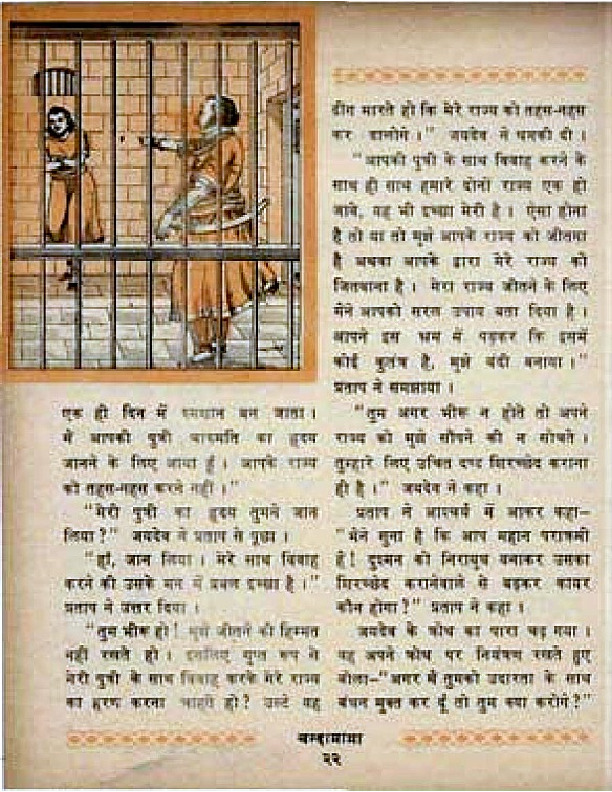 एक ही दिन में श्मशान बन जाता ।
मैं आपकी पुत्री चारुमति का हृदय
जानने के लिए आया हूँ । आपके राज्य
को तहस-नहस करने नहीं ।"
"मेरी पुत्री का हृदय तुमने जान
लिया?" जयदेव ने प्रताप से पूछा ।
"हाँ, जान लिया । मेरे साथ विवाह
करने की उसके मन में प्रबल इच्छा है ।"
प्रताप ने उत्तर दिया ।
"तुम भीरू हो! मुझे जीतने की हिम्मत
नहीं रखते हो । इसलिए गुप्त रूप से
मेरी पुत्री के साथ विवाह करके मेरे राज्य
का हरण करना चाहते हो? उल्टे यह
डींग मारते हो कि मेरे राज्य को तहस-नहस
कर डालोगे ।" जयदेव ने धमकी दी ।
"आपकी पुत्री के साथ विवाह करने के
साथ ही साथ हमारे दोनों राज्य एक हो
जावे, यह भी इच्छा मेरी है । ऐसा होना
है तो या तो मुझे आपके राज्य को जीतना
है अथवा आपके द्वारा मेरे राज्य को
जितवाना है । मेरा राज्य जीतने के लिए
मैंने आपको सरल उपाय बता दिया है ।
आपने इस भ्रम में पड़कर कि इसमें
कोई कुतंत्र है, मुझे बंदी बनाया ।"
प्रताप ने समझाया ।
"तुम अगर भीरू न होते तो अपने
राज्य को मुझे सौंपने की न सोचते ।
तुम्हारे लिए उचित दण्ड शिरच्छेद कराना
ही है ।" जयदेव ने कहा ।
प्रताप ने आश्चर्य में आकर कहा-
"मैंने सुना है कि आप महान पराक्रमी
हैं! दुश्मन को निरायुध बनाकर उसका
शिरच्छेद करानेवाले से बढ़कर कायर
कौन होगा?" प्रताप ने कहा ।
जयदेव के क्रोध का पारा चढ़ गया ।
वह अपने क्रोध पर नियंत्रण रखते हुए
बोला-"अगर मैं तुमको उदारता के साथ
बंधन मुक्त कर दूँ तो तुम क्या करोगे?"
चन्दामामा
२२